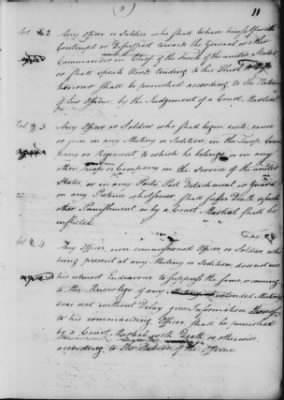 (2) 11
Art 2 Any Officer or Soldier who shall behave himself with
Contempt or Disrespect toward the General or other
Commander in Chief of the Forces of the united States
or shall speak Words tending to his Hurt or Dis-
honour shall be punished according to the Nature
of his Offence by the Judgement of a Court Martial
Art 3 Any Officer or Soldier who shall begin excite cause
or join in any Mutiny or Sedition in the Troop Com-
pany or Regiment to which he belongs or in any
other Troop or Company in the Service of the united
States, or in any Party Post Detachment or Guard
on any Pretence whatsoever shall suffer Death or such
other Punishment as by a Court Martial shall be
inflicted.
Art 4 Any Officer non commissioned Officer or Soldier who
being present at any Mutiny or Sedition does not use
his utmost Endeavour to suppress the same, or coming
to the Knowledge of any intended Mutiny
does not without Delay give Information
to his commanding Officer shall be punished
by a Court Martial with Death or otherwise
according to the Nature of the Offence